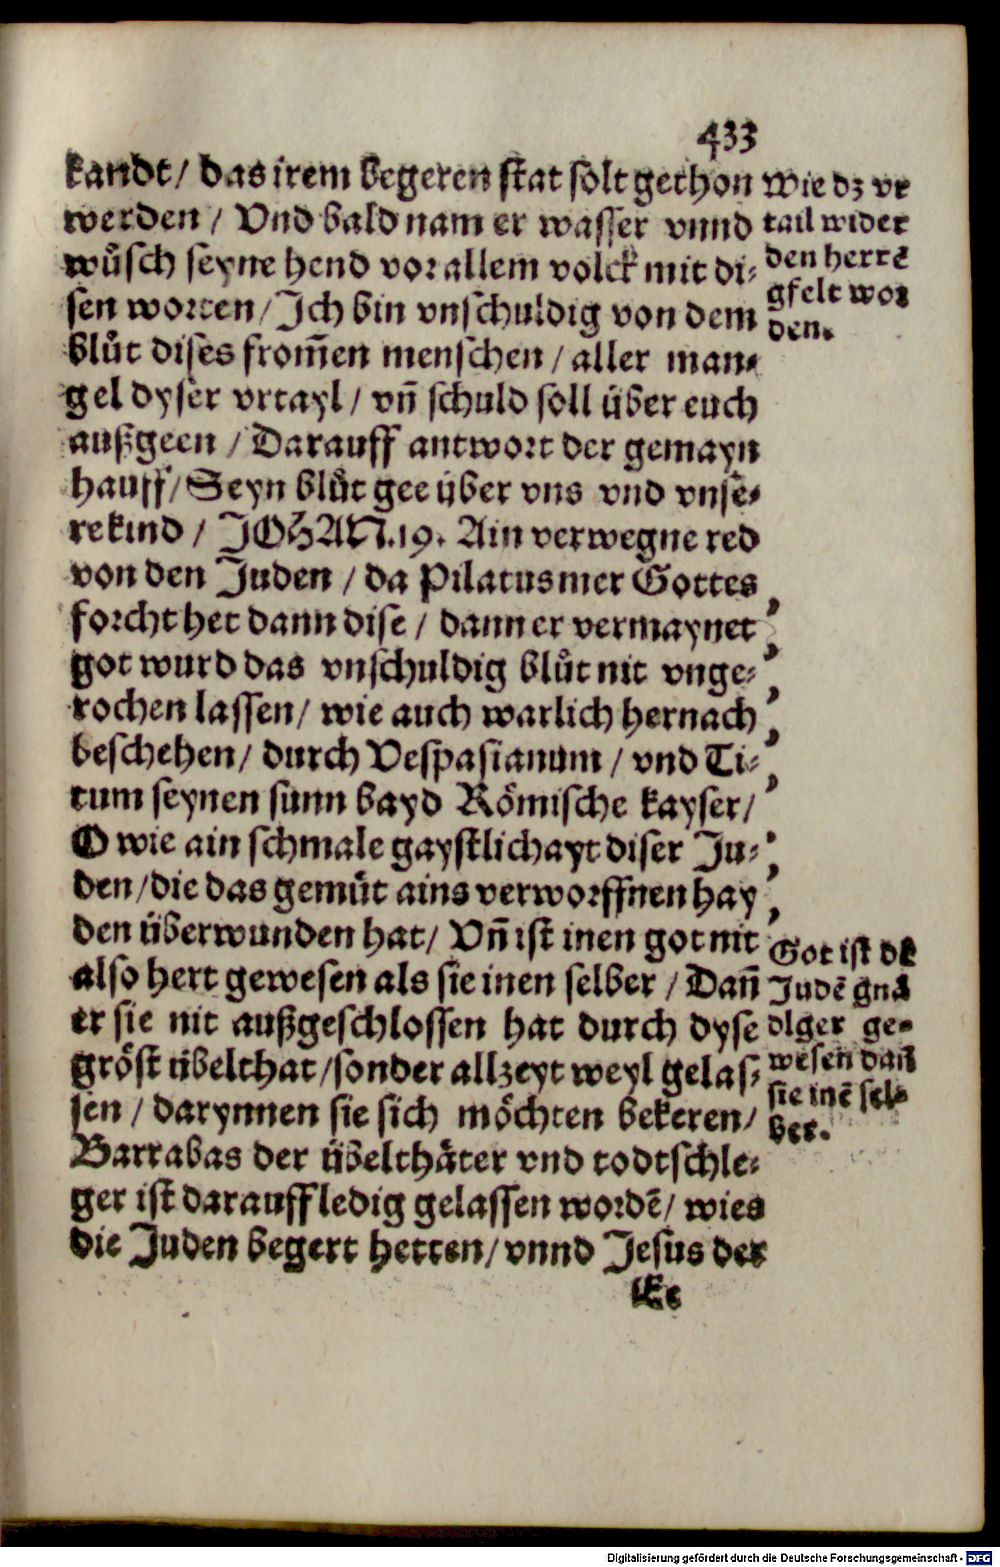 433
kandt/ das irem begeren stat solt gethon
werden / Vnd bald nam er wasser vnnd
wuͦsch seyne hend vor allem volck mit di-
sen worten/ Jch bin vnschuldig von dem
bluͦt dises from̃en menschen / aller man-
gel dyser vrtayl / vñ schuld soll über euch
außgeen / Darauff antwort der gemayn
hauff/ Seyn bluͦt gee über vns vnd vnse-
re kind / JOHAN.19. Ain verwegne red
von den Juden / da Pilatus mer Gottes
forcht het dann dise / dann er vermaynet
got wurd das vnschuldig bluͦt nit vnge-
rochen lassen/ wie auch warlich hernach
beschehen/ durch Vespasianum / vnd Ti-
tum seynen sunn bayd Römische kayser/
O wie ain schmale gaystlichayt diser Ju-
den/die das gemüt ains verworffnen hay
den überwunden hat/ Vñ ist inen got nit
also hert gewesen als sie inen selber / Dañ
er sie nit außgeschlossen hat durch dyse
gröst übelthat/sonder allzeyt weyl gelas-
sen / darynnen sie sich möchten bekeren/
Barrabas der übelthäter vnd todtschle-
ger ist darauff ledig gelassen wordẽ/ wies
die Juden begert hetten/ vnnd Jesus der
wie dz vr
tail wider
den herrẽ
gfelt wor
den.
Got ist dẽ
Judẽ gnä
diger ge-
wesen dañ
sie inẽ sel-
ber.
Digitalisierung gefördert durch die Deutsche Forschungsgemeinschaft - DFG